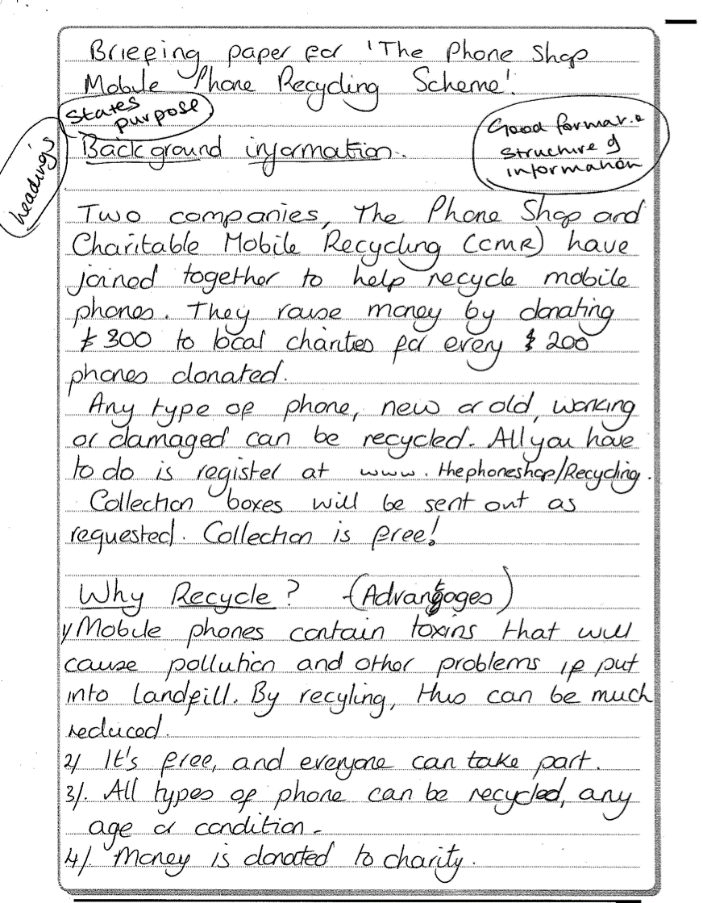 Briefing paper for 'The Phone Shop
Mobile Phone Recycling Scheme'.
States
purpose
heading's
Good format &
structure of
information
Background information.
Two companies, The Phone Shop and
Charitable Mobile Recycling (CMR) have
joined together to help recycle mobile
phones. They raise money by donating
£300 to local charites for every $200
phones donated.
Any type of phone, new or old, working
or damaged can be recycled. All you have
to do is register at www.thephoneshop/Recycling.
Collection boxes will be sent out as
requested. Collection is free!
Why Recycle? - (Advantages)
1/ Mobile phones contain toxins that will
cause pollution and other problems if put
into landfill. By recyling, this can be much
reduced.
2/ It's free, and everyone can take part.
3/. All types of phone can be recycled, any
age or condition.
4/. Money is donated to charity.